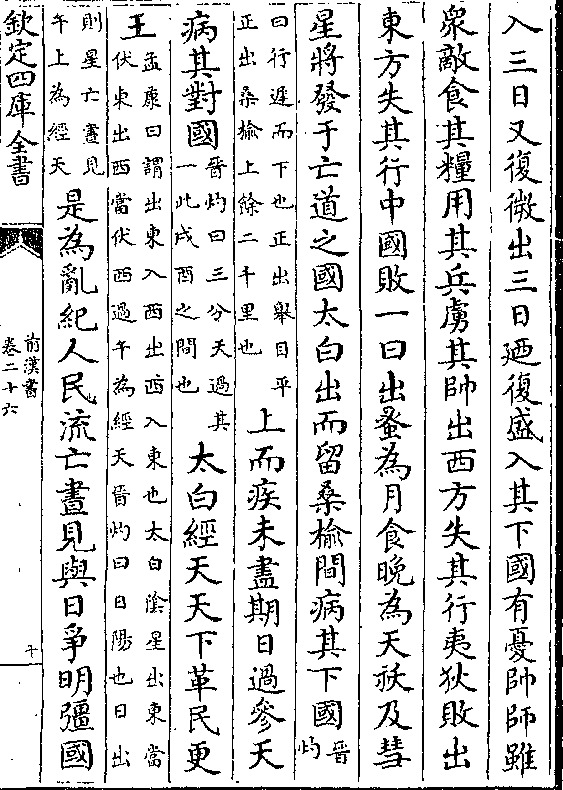 入三日又復微出三日廼復盛入其下國有憂帥師雖
衆敵食其糧用其兵虜其帥出西方失其行夷狄敗出
東方失其行中國敗一曰出蚤為月食晚為天祅及彗
星將發于亡道之國太白出而留桑榆間病其下國晉灼
曰行遲而下也正出舉目平正出桑榆上餘二千里也上而疾未盡期日過參天
病其對國晉灼曰三分天過其一此戌酉之間也太白經天天下革民更
王孟康曰謂出東入西出西入東也太白陰星出東當伏東出西當伏西過午為經天晉灼曰日陽也日出
則星亡晝見午上為經天是為亂紀人民流亡晝見與日爭明彊國
欽定四庫全書
前漢書
卷二十六
十